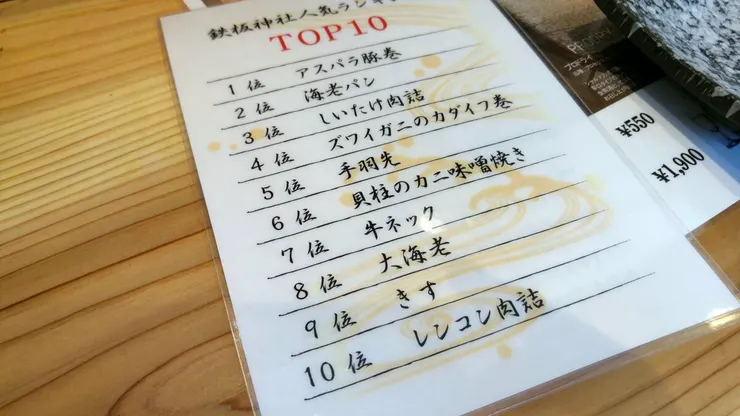 鉄板神社人気ランキ
TOP10
1位 アスパラ豚巻
2位 海老パン
3位 しいたけ肉詰
4位 ズワイガニのカダイフ巻
5位 手羽先
6位 貝柱のカニ味噌焼き
7位 牛ネック
8位 大海老
9位 きす
10位 レンコン肉詰
¥550
¥1,900